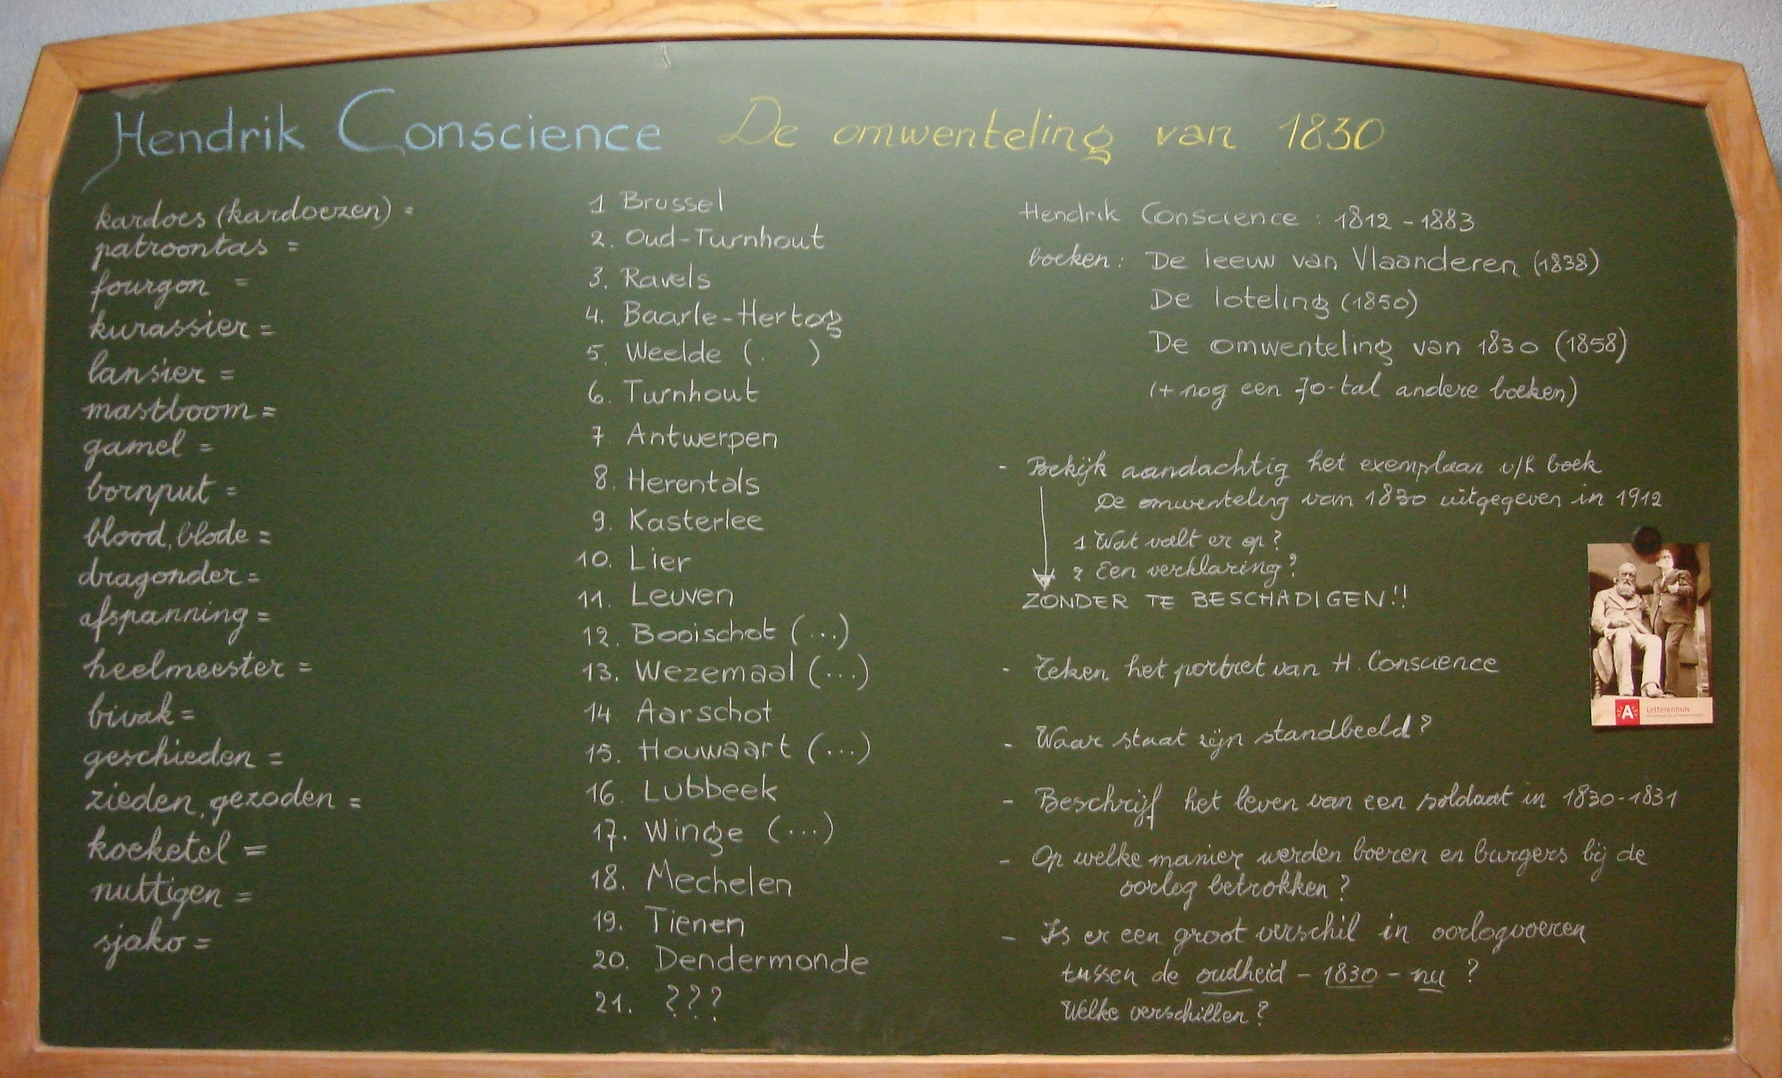 Hendrik Conscience De omwenteling van 1830
kardoes (kardoezen) =
patroontas =
fourgon =
kurassier =
lansier =
mastboom =
gamel =
bornput =
blood, blode =
dragonder =
afspanning =
heelmeester =
bivak =
geschieden =
zieden, gezoden =
koeketel =
nuttigen =
sjako =
1 Brussel
2. Oud-Turnhout
3. Ravels
4. Baarle-Hertog
5. Weelde (. )
6. Turnhout
7 Antwerpen
8. Herentals
9. Kasterlee
10. Lier
11. Leuven
12. Booischot (...)
13. Wezemaal (...)
14 Aarschot
15. Houwaart (...)
16. Lubbeek
17. Winge (...)
18. Mechelen
19. Tienen
20. Dendermonde
21. ???
Hendrik Conscience : 1812 - 1883
boeken : De leeuw van Vlaanderen (1838)
De loteling (1850)
De omwenteling van 1830 (1858)
(+ nog een 70-tal andere boeken)
- Bekijk aandachtig het exemplaar v/h boek
De omwenteling van 1830 uitgegeven in 1912
1 Wat valt er op?
2 Een verklaring?
ZONDER TE BESCHADIGEN!!
- Teken het portret van H. Conscience
- Waar staat zijn standbeeld?
- Beschrijf het leven van een soldaat in 1830-1831
- Op welke manier werden boeren en burgers bij de
oorlog betrokken?
- Is er een groot verschil in oorlogvoeren
tussen de oudheid - 1830 - nu ?
Welke verschillen?
A Letterenhuis